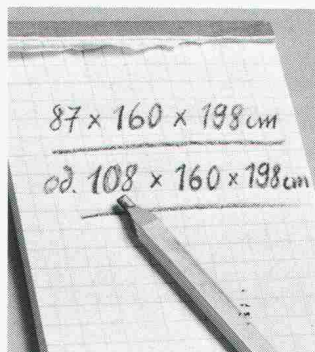 87 x 160 x 198cm
od. 108 x 160 x 198cm